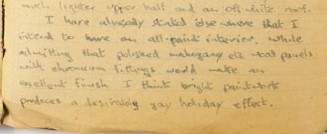 much lighter upper half and an off white roof.
I have already stated elsewhere that I
intend to have an all-paint interior. While
admitting that polished mahogany etc panels
with chromium fittings would make an
excellent finish I think bright paintwork
produces a desirably gay holiday effect.